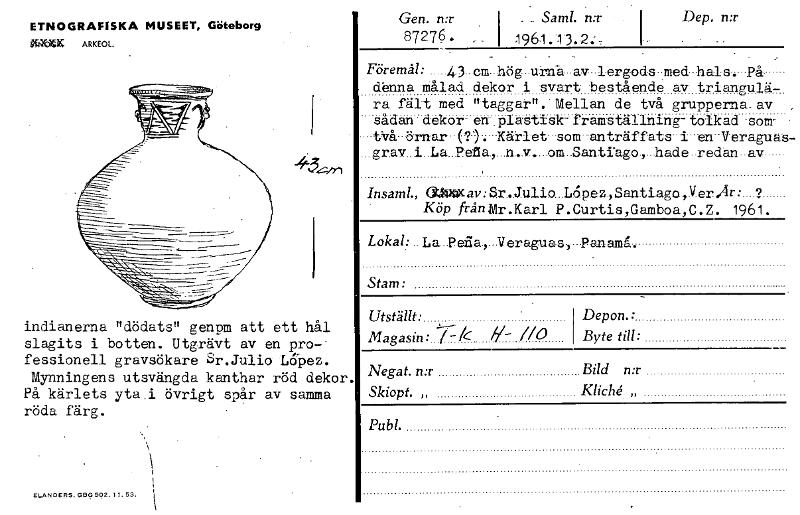 ETNOGRAFISKA MUSEET, Göteborg
ARKEOL.
43 cm
indianerna "dödats" genpm att ett hål
slagits i botten. Utgrävt av en pro-
fessionell gravsökare Sr.Julio López.
Mynningens utsvängda kanthar röd dekor.
På kärlets yta i övrigt spår av samma
röda färg.
ELANDERS. GBG 502. 11. 53.
Gen. n:r
87276.
Saml. n:r
1961.13.2.
Dep. n:r
Föremål: 43 cm hög urna av lergods med hals. På
denna målad dekor i svart bestående av triangulä-
ra fält med "taggar". Mellan de två grupperna av
sådan dekor en plastisk framställning tolkad som
två örnar (?). Kärlet som anträffats i en Veraguas-
grav i La Peña, n.v. om Santiago, hade redan av
Insaml., av: Sr.Julio López,Santiago,Ver År: ?
Köp från Mr.Karl P.Curtis,Gamboa,C.Z. 1961.
Lokal: La Peña, Veraguas, Panamá.
Stam:
Utställt:
Depon.:
Magasin: T-K H-110
Byte till:
Negat. n:r
Bild n:r
Skiopt. „
Kliché „
Publ.